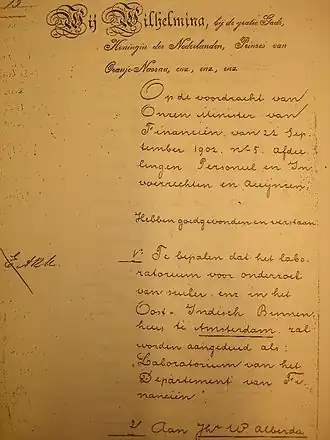 Wij Wilhelmina, bij de gratie Gods,
Koningin der Nederlanden, Prinses van
Oranje-Nassau, enz., enz., enz.
Op de voordracht van
Onzen Minister van
Financiën, van 22 Sep-
tember 1902, no 5, Afdee-
lingen Personeel en In-
voerrechten en Accijnzen.
Hebben goedgevonden en verstaan:
1o. Te bepalen dat het labo-
ratorium voor onderzoek
van suiker enz in het
Oost-Indisch Binnen-
huis te Amsterdam, zal
worden aangeduid als:
"Laboratorium van het
Departement van Fi-
nanciën"
2) Aan Jhr W. Alberda